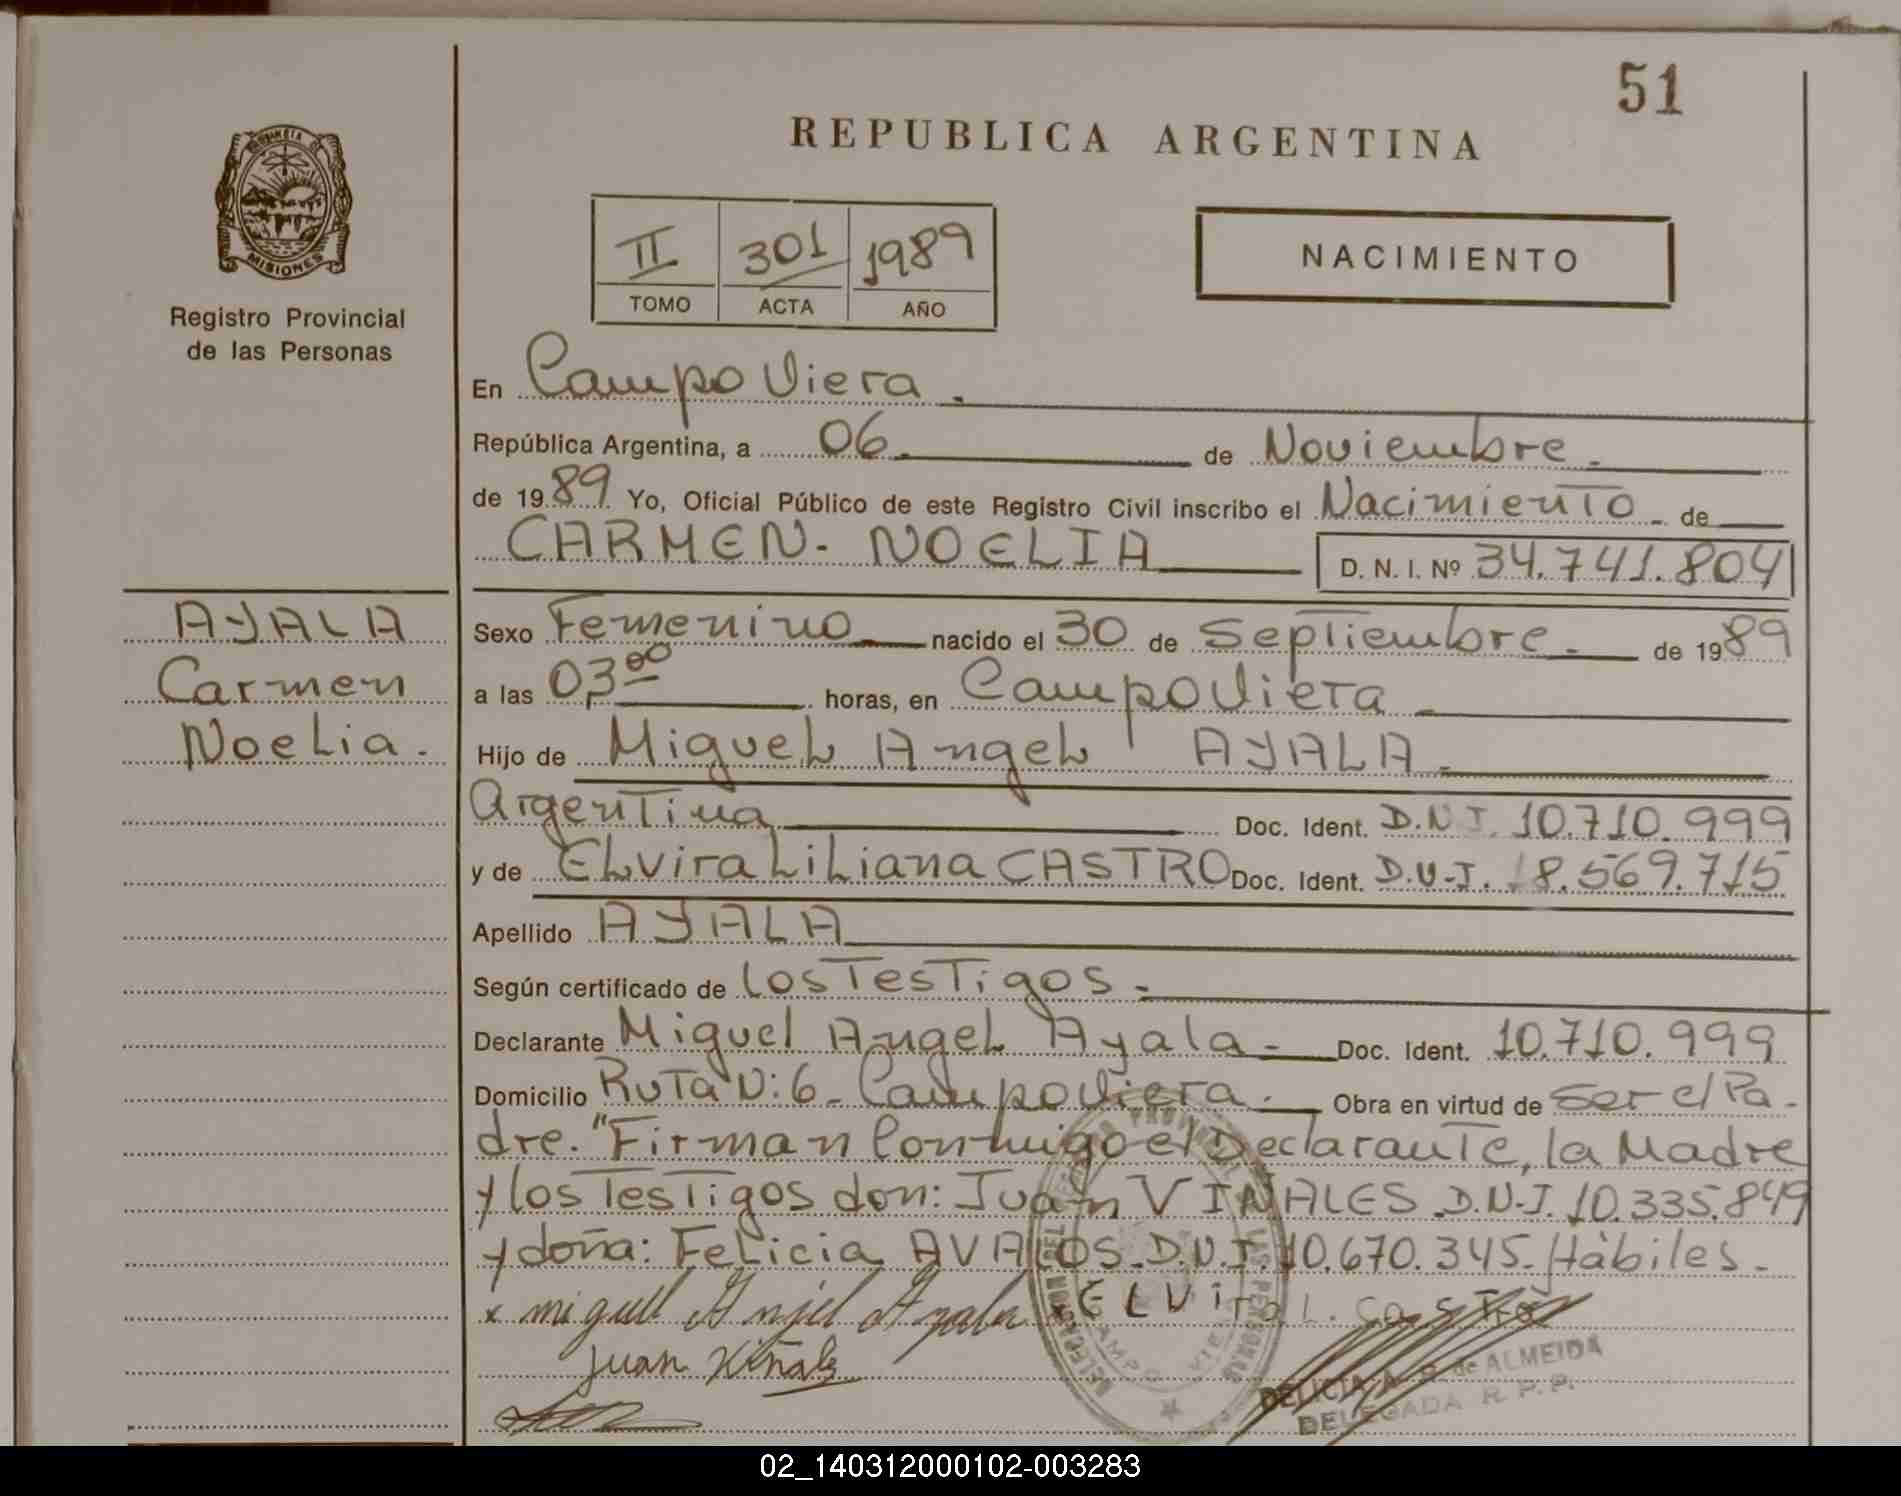 51
REPUBLICA ARGENTINA
PROVINCIA DE
MISIONES
Registro Provincial
de las Personas
II 301 1989
TOMO ACTA AÑO
NACIMIENTO
En Campo Viera.
República Argentina, a 06. de Noviembre.
de 1989 Yo, Oficial Público de este Registro Civil inscribo el Nacimiento de
CARMEN. NOELIA D. N. I. Nº 34.741.804
AYALA
Carmen
Noelia.
Sexo Femenino nacido el 30 de Septiembre. de 1989
a las 03,00 horas, en Campo Viera
Hijo de Miguel Angel AYALA.
Argentina Doc. Ident. D.N.I. 10.710.999
y de Elvira Liliana CASTRO Doc. Ident. D.N.I. 18.569.715
Apellido AYALA
Según certificado de los Testigos.
Declarante Miguel Angel Ayala. Doc. Ident. 10.710.999
Domicilio Ruta N: 6 - Campo Viera. Obra en virtud de Ser el Pa-
dre. "Firman Conmigo el Declarante, la Madre
y los Testigos don: Juan VIÑALES D.N.I. 10.335.849
y doña: Felicia AVALOS. D.N.I. 10.670.345. Hábiles.
x miguel Anjel Ayala x ELVira L. CasTro
Juan Viñales
DELICIA A. de ALMEIDA
DELEGADA R. P. P.
02_140312000102-003283